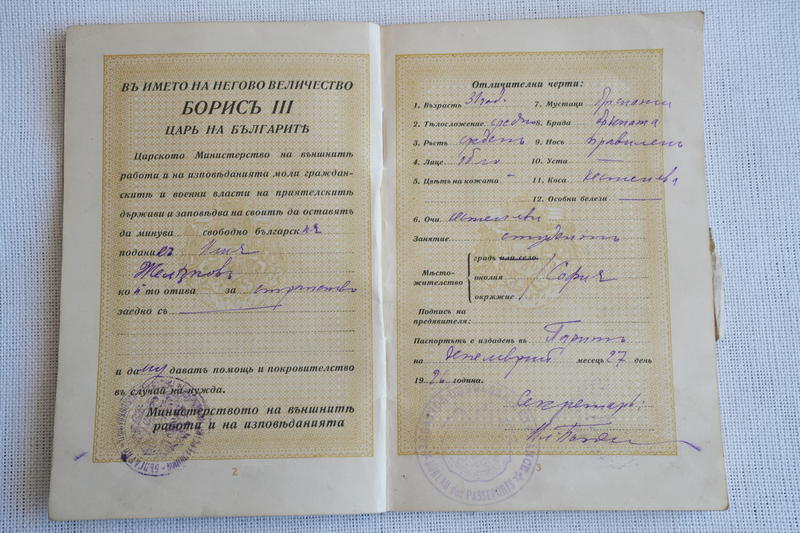 ВЪ ИМЕТО НА НЕГОВО ВЕЛИЧЕСТВО
БОРИСЪ III
ЦАРЬ НА БЪЛГАРИТѢ
Царското Министерство на външнитѣ
работи и на изповѣданията моли граждан-
скитѣ и военни власти на приятелскитѣ
държави и заповѣдва на своитѣ да оставятъ
да минува свободно българск ия
подани къ Илия
Желѣзковъ
ко й то отива за странство
заедно съ
и да му даватъ помощь и покровителство
въ случай на нужда.
Министерството на външнитѣ
работи и на изповѣданията
2
Отличителни черти:
1. Възрасть 31 год.
2. Тѣлосложение средно
3. Ръсть среденъ
4. Лице
5. Цвѣтъ на кожата
6. Очи кестеневи
7. Мустаци
8. Брада
9. Носъ правиленъ
10. Уста
11. Коса кестенева
12. Особни белези
Занятие студентъ
Мѣсто-
жителство
градъ или село
околия София
окржжие
Подпись на
предявителя:
Паспортътъ е издаденъ въ
на Декемврий месець 27 день
19 26 година.
Секретарь:
BUREAU des PASSEPORTS
3